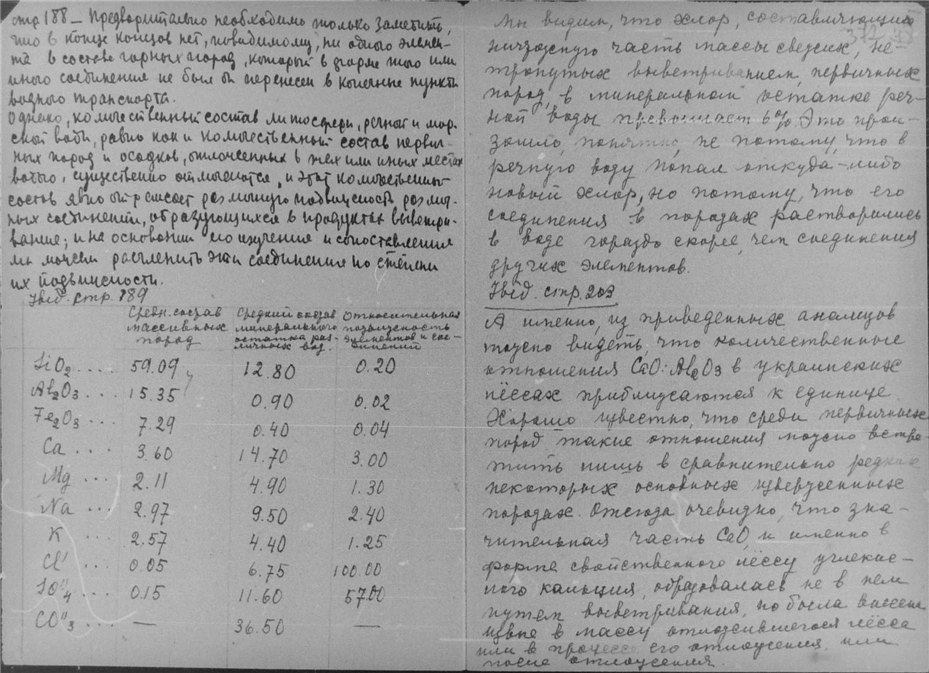 стр 188 – Предварительно необходимо только заметить,
что в конце концов нет, повидимому, ни одного элемен-
та в составе горных пород, который в форме того или
иного соединения не был бы перенесен в конечные пункты
водного транспорта.
Однако, количественный состав литосферы, речной и мор-
ской воды, равно как и количественный состав первич-
ных пород и осадков, отложенных в тех или иных местах
водою, существенно отличаются, и этот количественный
состав явно отражает различную подвижность различ-
ных соединений, образующихся в продуктах выветри-
вания; и на основании его изучения и сопоставления
мы можем расчленить эти соединения по степени
их подвижности.
Ibid. стр. 189
Средн. состав массивных пород
Средний состав минерального остатка различных вод.
Относительная подвижность элементов и соединений
SiO2 .... 59.09 12.80 0.20
Al2O3 ... 15.35 0.90 0.02
Fe2O3 ... 7.29 0.40 0.04
Ca .... 3.60 14.70 3.00
Mg ... 2.11 4.90 1.30
Na ... 2.97 9.50 2.40
K .... 2.57 4.40 1.25
Cl' ... 0.05 6.75 100.00
SO''4 ... 0.15 11.60 57.00
CO''3 ... — 36.50 —
Мы видим, что хлор, составляющий
ничтожную часть массы свежих, не-
тронутых выветриванием первичных
пород, в минеральном остатке реч-
ной воды превышает 6%. Это прои-
зошло, понятно, не потому, что в
речную воду попал откуда-либо
новый хлор, но потому, что его
соединения в породах растворились
в воде гораздо скорее, чем соединения
других элементов.
Ibid. стр. 203
А именно, из приведенных анализов
можно видеть, что количественные
отношения CaO:Al2O3 в украинских
лёссах приближаются к единице.
Хорошо известно, что среди первичных
пород такие отношения можно встре-
тить лишь в сравнительно редких
некоторых основных изверженных
породах. Отсюда очевидно, что зна-
чительная часть CaO, и именно в
форме свойственного лёссу углекис-
лого кальция, образовалась не в нем
путем выветривания, но была внесена
извне в массу отложившегося лёсса
или в процессе его отложения, или
после отложения.